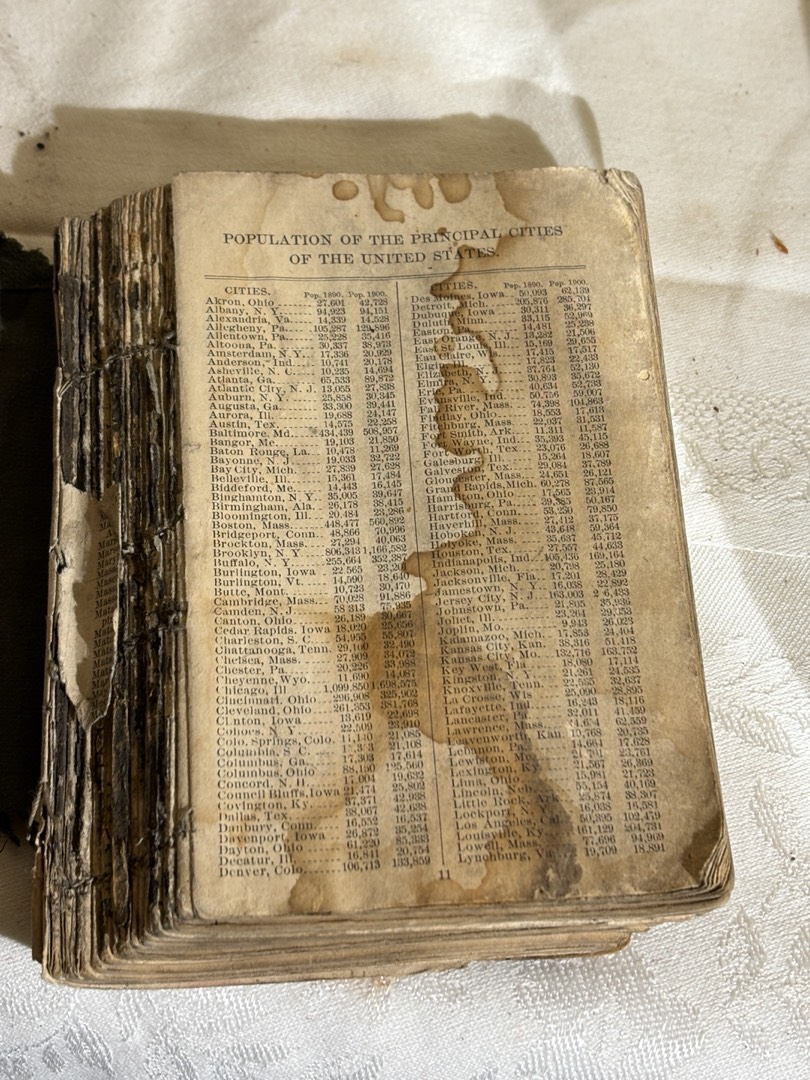 POPULATION OF THE PRINCIPAL CITIES
OF THE UNITED STATES.
CITIES. Pop. 1890. Pop. 1900.
Akron, Ohio 27,601 42,728
Albany, N. Y. 94,923 94,151
Alexandria, Va. 14,339 14,528
Allegheny, Pa. 105,287 129,896
Allentown, Pa. 25,228 35,416
Altoona, Pa. 30,337 38,973
Amsterdam, N. Y. 17,336 20,929
Anderson, Ind. 10,741 20,178
Asheville, N. C. 10,235 14,694
Atlanta, Ga. 65,533 89,872
Atlantic City, N. J. 13,055 27,838
Auburn, N. Y. 25,858 30,345
Augusta, Ga. 33,300 39,441
Aurora, Ill. 19,688 24,147
Austin, Tex. 14,575 22,258
Baltimore, Md. 434,439 508,957
Bangor, Me. 19,103 21,850
Baton Rouge, La. 10,478 11,269
Bayonne, N. J. 19,033 32,722
Bay City, Mich. 27,839 27,628
Belleville, Ill. 15,361 17,484
Biddeford, Me. 14,443 16,145
Binghamton, N. Y. 35,005 39,647
Birmingham, Ala. 26,178 38,415
Bloomington, Ill. 20,484 23,286
Boston, Mass. 448,477 560,892
Bridgeport, Conn. 48,866 70,996
Brockton, Mass. 27,294 40,063
Brooklyn, N. Y. 806,343 1,166,582
Buffalo, N. Y. 255,664 352,387
Burlington, Iowa 22,565 23,201
Burlington, Vt. 14,590 18,640
Butte, Mont. 10,723 30,470
Cambridge, Mass. 70,028 91,886
Camden, N. J. 58,313 75,935
Canton, Ohio 26,189 30,667
Cedar Rapids, Iowa 18,020 25,656
Charleston, S. C. 54,955 55,807
Chattanooga, Tenn. 29,100 32,490
Chelsea, Mass. 27,909 34,072
Chester, Pa. 20,226 33,988
Cheyenne, Wyo. 11,690 14,087
Chicago, Ill 1,099,850 1,698,575
Cincinnati, Ohio 296,908 325,902
Cleveland, Ohio 261,353 381,768
Clinton, Iowa 13,619 22,698
Cohoes, N. Y. 22,509 23,910
Colo. Springs, Colo. 11,140 21,085
Columbia, S. C. 21,108
Columbus, Ga. 17,303 17,614
Columbus, Ohio 88,150 125,560
Concord, N. H. 17,004 19,632
Council Bluffs, Iowa 21,474 25,802
Covington, Ky. 37,371 42,938
Dallas, Tex. 38,067 42,638
Danbury, Conn. 16,552 16,537
Davenport, Iowa 26,872 35,254
Dayton, Ohio 61,220 85,333
Decatur, Ill. 16,841 20,754
Denver, Colo. 106,713 133,859
CITIES. Pop. 1890. Pop. 1900.
Des Moines, Iowa 50,093 62,139
Detroit, Mich. 205,876 285,704
Dubuque, Iowa 30,311 36,297
Duluth, Minn. 33,115 52,969
Easton, Pa. 14,481 25,238
East Orange, N. J. 13,282 21,506
East St. Louis, Ill. 15,169 29,655
Eau Claire, W 17,415 17,517
Elgin 17,823 22,433
Elizabeth, N. J. 37,764 52,130
Elmira, N. Y. 30,893 35,672
Erie, Pa. 40,634 52,733
Evansville, Ind. 50,756 59,007
Fall River, Mass. 74,398 104,863
Findlay, Ohio 18,553 17,613
Fitchburg, Mass. 22,037 31,531
Fort Smith, Ark. 11,311 11,587
Fort Wayne, Ind. 35,393 45,115
Fort Tex. 23,076 26,688
Galesburg, Ill. 15,264 18,607
Galveston, Tex. 29,084 37,789
Gloucester, Mass. 24,651 26,121
Grand Rapids, Mich. 60,278 87,565
Hamilton, Ohio 17,565 23,914
Harrisburg, Pa. 39,385 50,167
Hartford, Conn. 53,230 79,850
Haverhill, Mass. 27,412 37,175
Hoboken, N. J. 43,648 59,364
Holyoke, Mass. 35,637 45,712
Houston, Tex. 27,557 44,633
Indianapolis, Ind. 105,436 169,164
Jackson, Mich. 20,798 25,180
Jacksonville, Fla. 17,201 28,429
Jamestown, N. Y. 16,038 22,892
Jersey City, N. J. 163,003 206,433
Johnstown, Pa. 21,805 35,936
Joliet, Ill. 23,264 29,353
Joplin, Mo. 9,943 26,023
Kalamazoo, Mich. 17,853 24,404
Kansas City, Kan. 38,316 51,418
Kansas City, Mo. 132,716 163,752
Key West, Fla 18,080 17,114
Kingston, N. Y. 21,261 24,535
Knoxville, Tenn. 22,535 32,637
La Crosse, Wis 25,090 28,895
Lafayette, Ind. 16,243 18,116
Lancaster, Pa. 32,011 41,459
Lawrence, Mass. 44,654 62,559
Leavenworth, Kan. 19,768 20,735
Lebanon, Pa. 14,664 17,628
Lewiston, Me. 21,701 23,761
Lexington, Ky. 21,567 26,369
Lima, Ohio 15,981 21,723
Lincoln, Neb. 55,154 40,169
Little Rock, Ark. 25,874 38,307
Lockport, N. Y. 16,038 16,581
Los Angeles, Cal. 50,395 102,479
Louisville, Ky. 161,129 204,731
Lowell, Mass. 77,696 94,969
Lynchburg, Va. 19,709 18,891
11